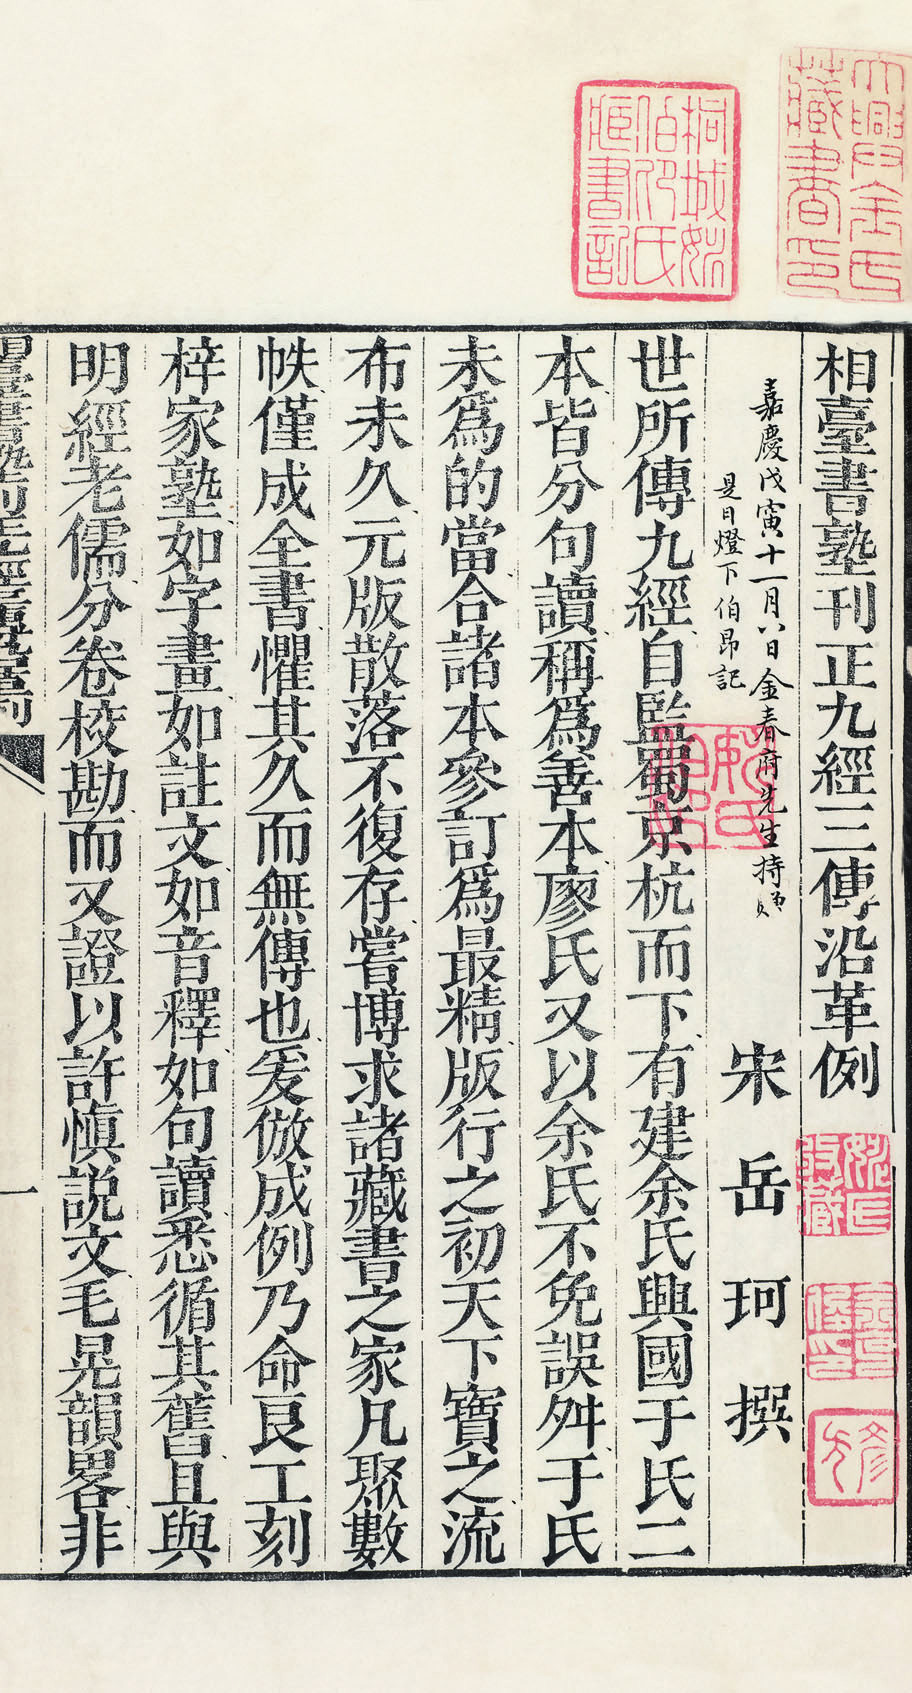 大興金氏
藏書畵印
桐城姚
伯昂氏
藏書記
相臺書塾刊正九經三傳沿革例
嘉慶戊寅十一月八日金春府先生持贈
是日燈下伯昂記
宋岳珂撰
世所傳九經自監蜀京杭而下有建余氏興國于氏二
本皆分句讀稱爲善本廖氏又以余氏不免誤舛于氏
未爲的當合諸本參訂爲最精版行之初天下寶之流
布未久元版散落不復存嘗博求諸藏書之家凡聚數
帙僅成全書懼其久而無傳也爰倣成例乃命良工刻
梓家塾如字畫如註文如音釋如句讀悉循其舊且與
明經老儒分卷校勘而又證以許慎說文毛晃韻畧非
相臺書塾刊正九經三傳沿革例
一
姚氏
伯昂
姚氏
收藏